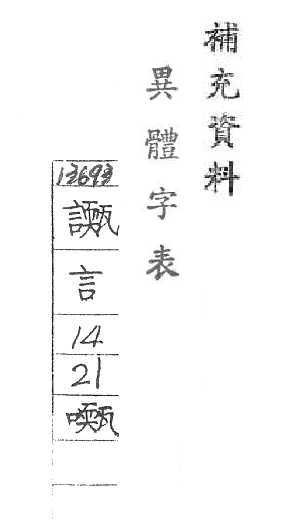 補充資料
異體字表
13693
言
14
21